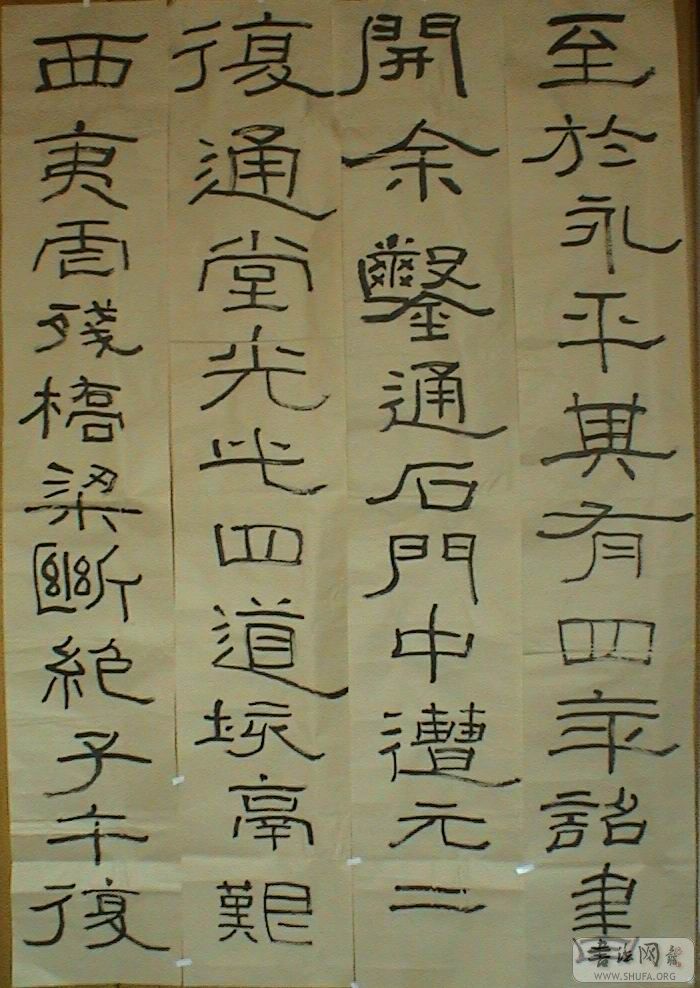 至於永平其有四年詔書
開余鑿通石門中遭元二
復通堂光此四道垓鬲艱
西夷虐殘橋梁斷絕子午復
书法网
WWW.SHUFA.ORG